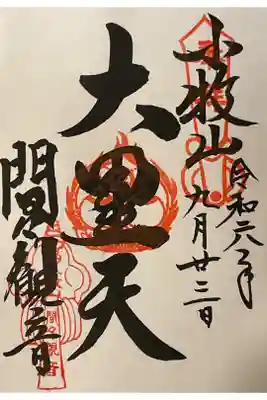 小牧山
令和六年
九月廿三日
大黒天
間々観音